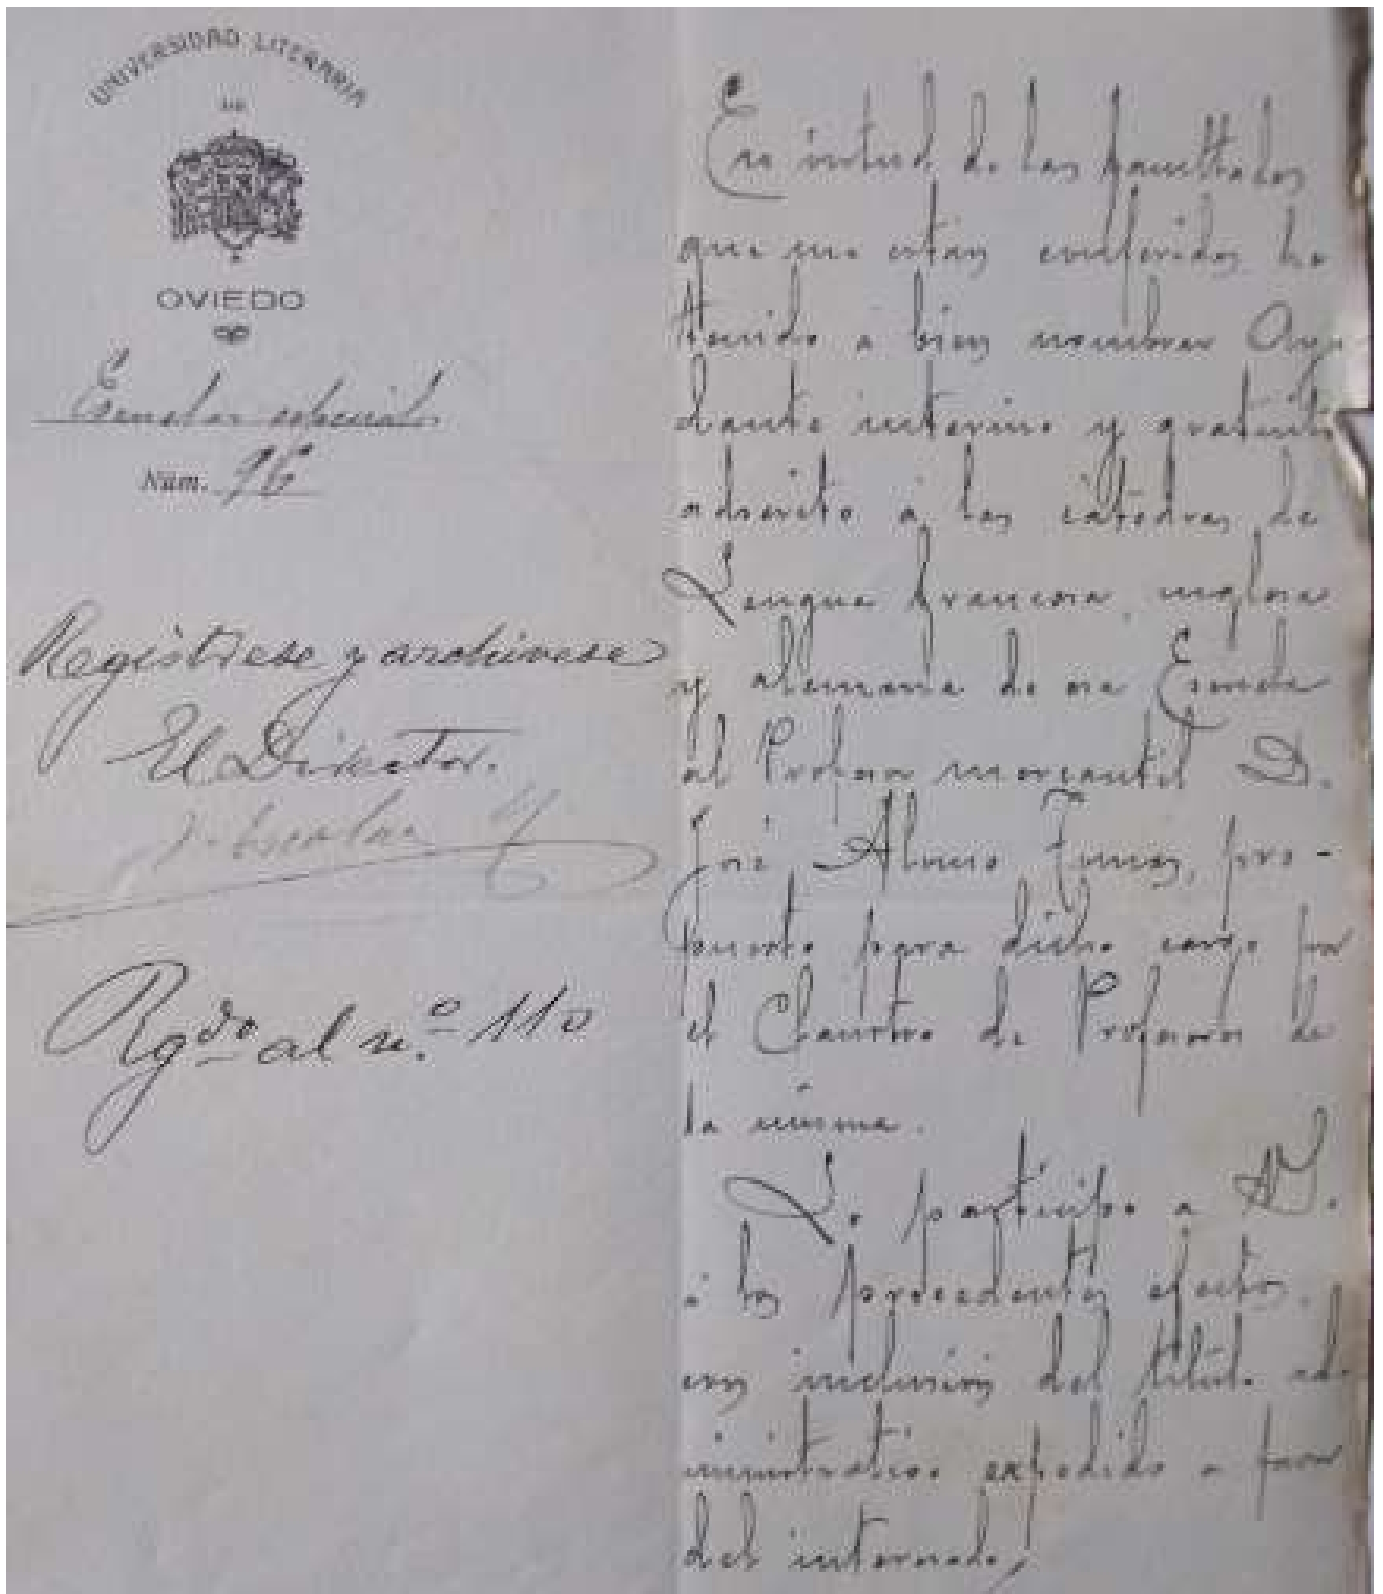 UNIVERSIDAD LITERARIA
DE
OVIEDO
Escuelas especiales
Núm. 96
Regístrese y archívese
El Director.
Rgdo al n.º 110
En virtud de las facultades
que me están conferidas he
tenido a bien nombrar Ayu-
dante interino y gratuito
adscrito á las cátedras de
Lengua francesa, inglesa
y alemana de esa Escuela
al Profesor mercantil D.
José Alonso pro-
puesto para dicho cargo por
el Claustro de Profesores de
la misma.
Lo participo a V.
a los procedentes efectos,
con inclusión del título ad-
ministrativo expedido a favor
del interesado,